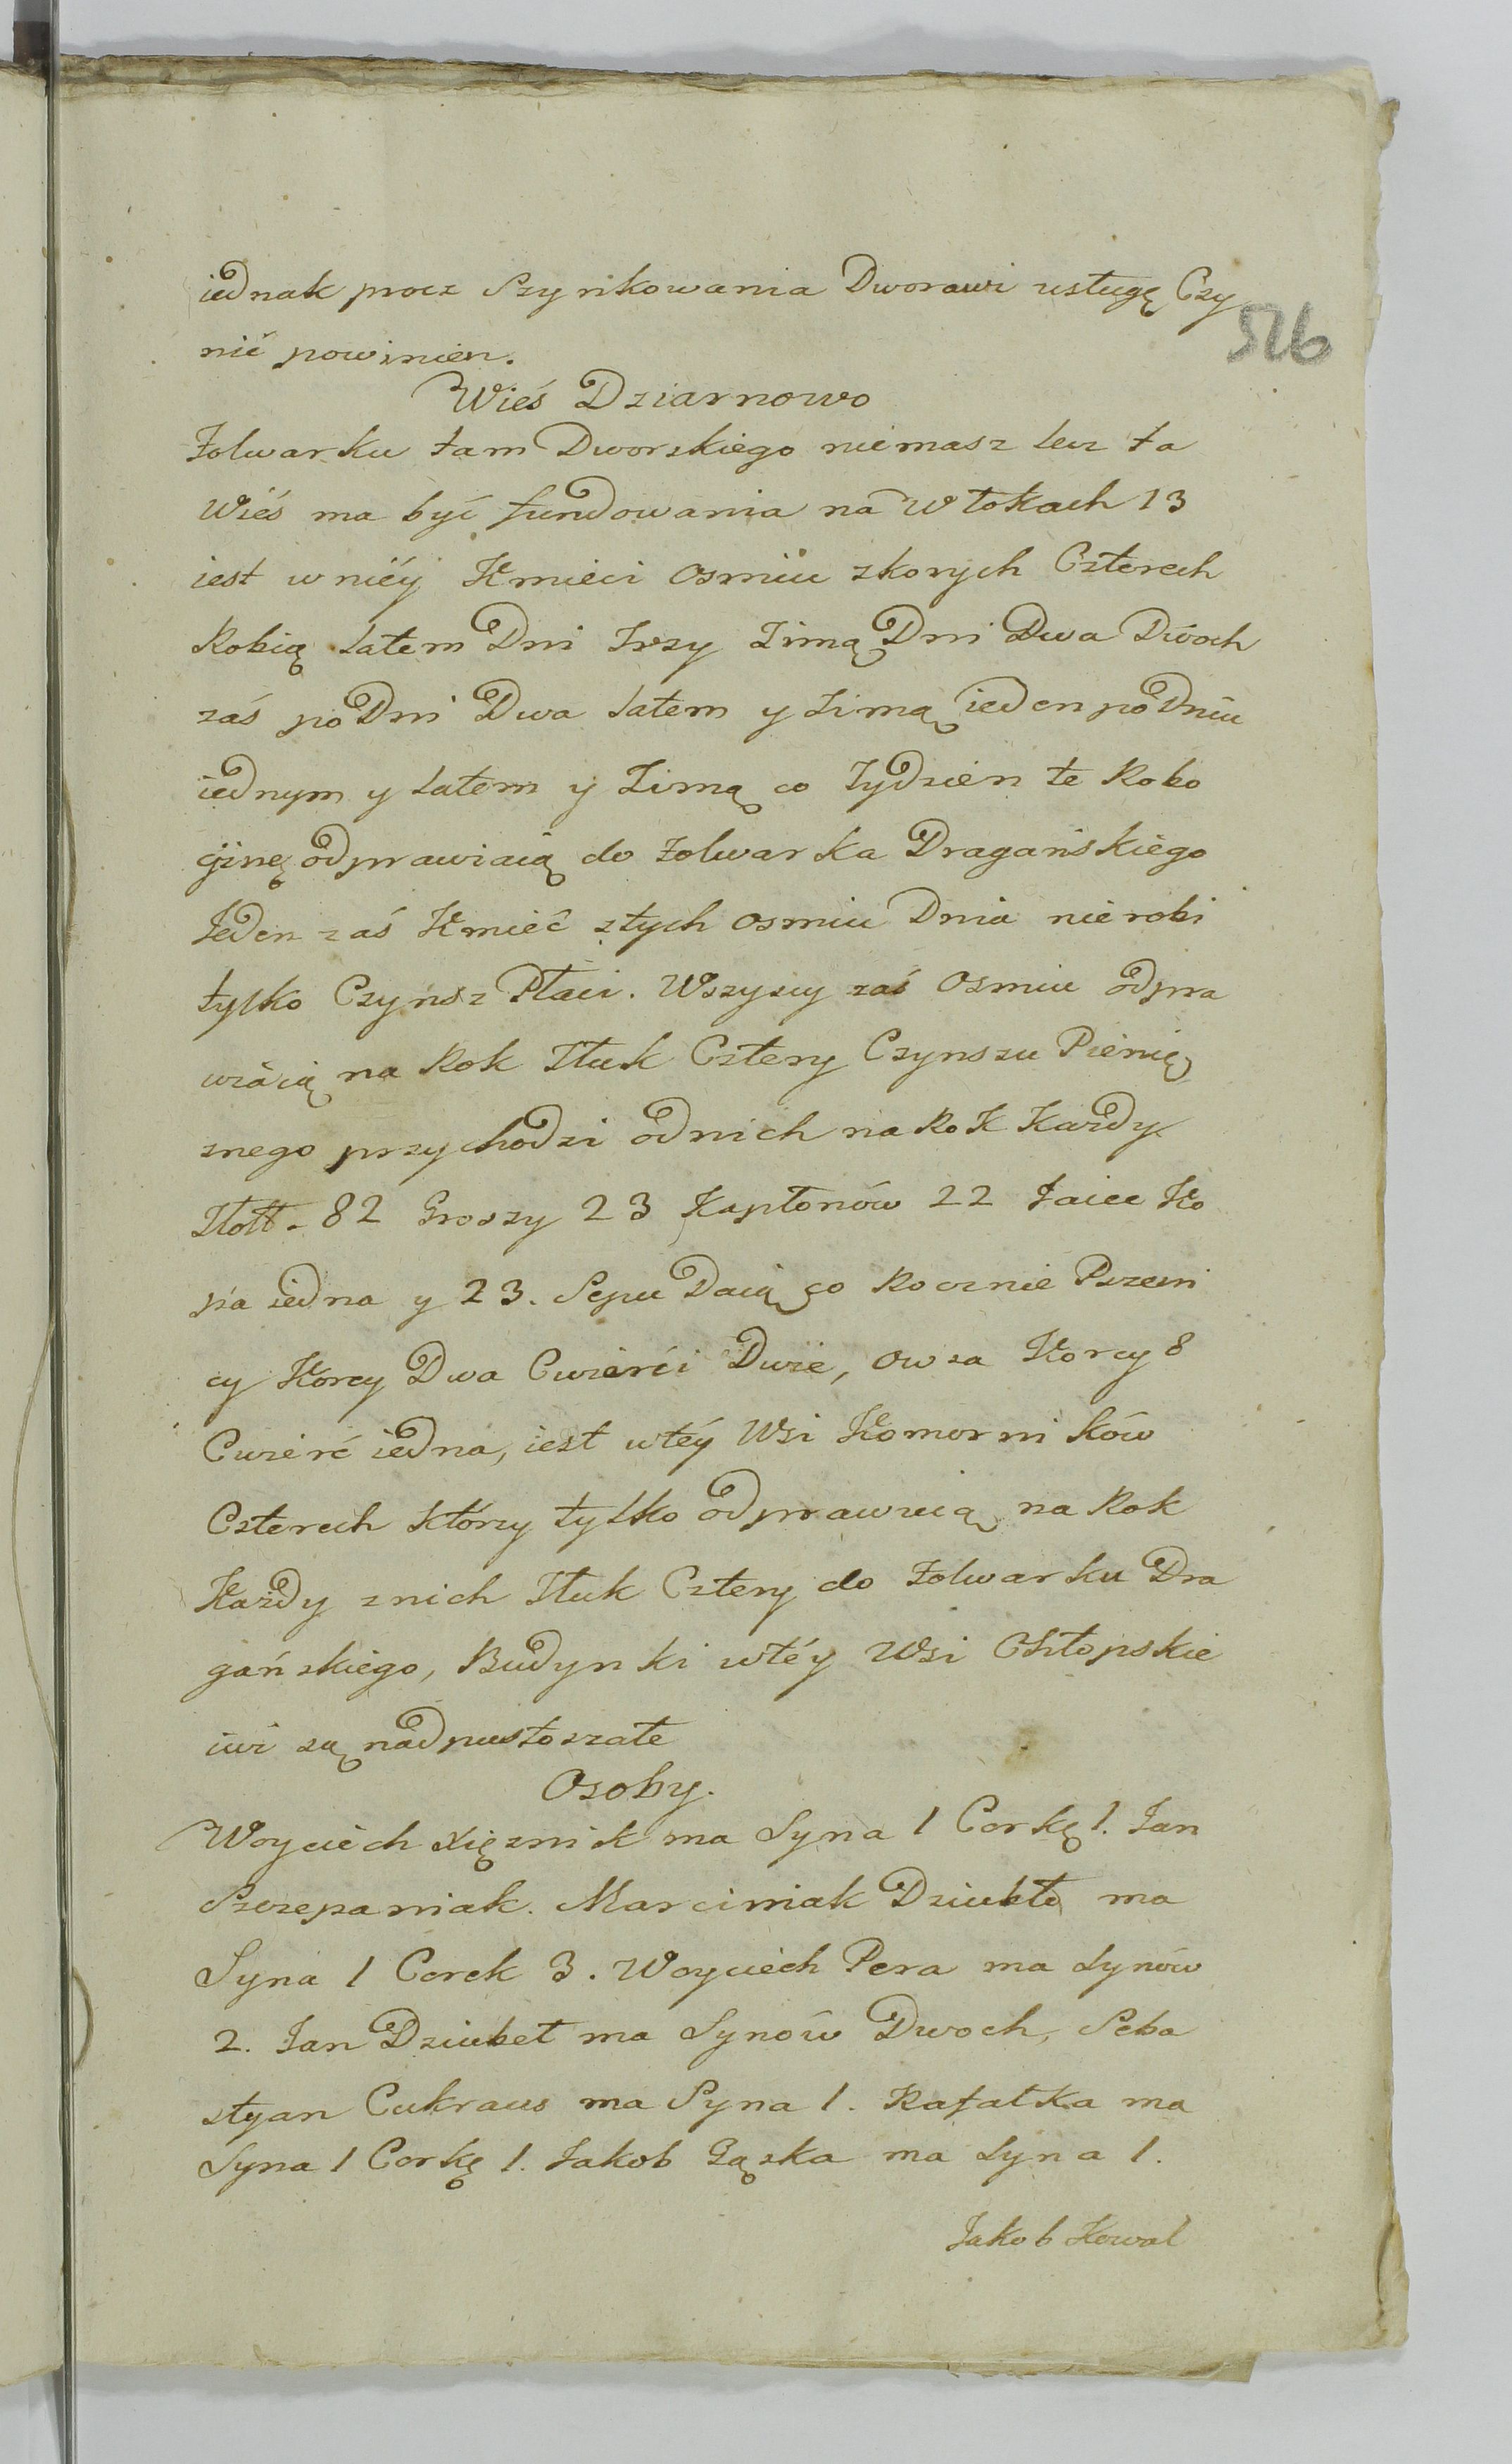 iednak procz Szynkowania Dworawi usługę Czy
526
nić powinien.
Wieś Dziarnowo
Folwarku tam Dworskiego niemasz lecz ta
Wieś ma być fundowania na Włokach 13
iest w niéy Kmieci Osmiu zkorych Czterech
Robią Latem Dni Trzy Zimą Dni Dwa Dwoch
zaś po Dni Dwa Latem y Zimą ieden po Dniu
iednym y Latem y Zimą co Tydzień te Robo
ciznę odprawiaią do Folwarka Dragańskiego
Jeden zaś Kmieć ztych Osmiu Dnia nie robi
tylko Czynsz Płaci. Wszyscy zaś Osmiu odpra
wiaią na Rok Tłuk Cztery Czynszu Pienię
znego przychodzi od nich na Rok Każdy
Złott. 82 Groszy 23 Kapłonów 22 Jaiec Ko
pa iedna y 23. Sepu Daią co Rocznie Pszeni
cy Korcy Dwa Cwierci Dwie, Owsa Korcy 8
Cwierć iedna, iest wtéy Wsi Komorników
Czterech którzy tylko odprawuią na Rok
Każdy znich Tłuk Cztery do Folwarku Dra
gańskiego, Budynki wtéy Wsi Chłopskie
iuż są nadpustoszałe
Osoby.
Woyciech Xięznik ma Syna 1 Corkę 1. Jan
Szczepaniak. Marciniak Dziubła ma
Syna 1 Corek 3. Woyciech Pera ma Synów
2. Jan Dziubeł ma Synów Dwoch, Seba
styan Cukraus ma Syna 1. Rafałka ma
Syna 1 Corkę 1. Jakob Gąska ma Syna 1.
Jakob Kowal